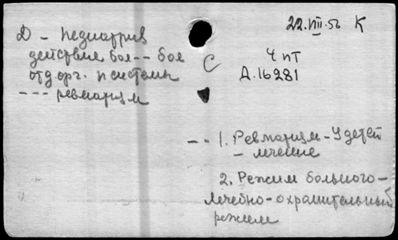 22.VIII.56 К
Д - педиатрия
действие бол -- бол
отд орг. и системы
--- ревматизм
С
4 пТ
Д.16281
-- 1. Ревматизм - у детей
- лечение
2. Режим больного -
лечебно-охранительный
режим